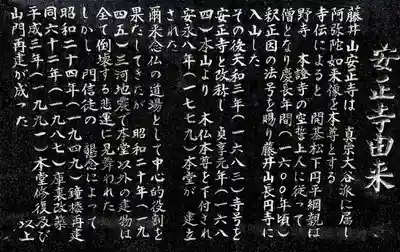 安正寺由来
藤井山安正寺は、真宗大谷派に属し
阿弥陀如来像を本尊とする
寺伝によると、開基松下円平綱親は
野寺、本證寺の空誓上人に従って
僧となり慶長年間(一六〇〇年頃)
釈正因の法号を賜り藤井山長円寺に
入山した。
その後天和三年(一六八三)寺号を
安正寺と改称し、貞享元年(一六八
四)本山より、木仏本尊を下付され
安永八年(一七七九)本堂が、建立
された。
爾来念仏の道場として中心的役割を
果たしてきたが、昭和二十年(一九
四五)三河地震で本堂以外の建物は
全て倒壊する悲運に見舞われた。
しかし、門信徒の、懇念によって
昭和二十四年(一九四九)鐘楼再建
同六十二年(一九八七)庫裏改築
平成三年(一九九一)本堂修復及び
山門再建が成った。 以上